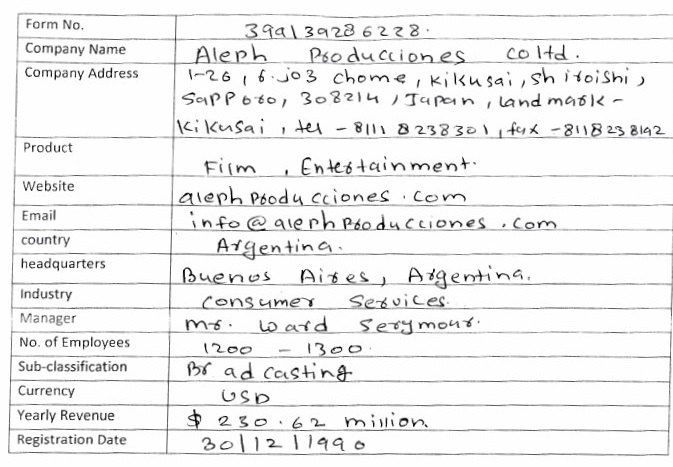 Form No. 399139286228.
Company Name Aleph Producciones co ltd.
Company Address 1-26, 6.jo3 chome, kikusai, shiroishi,
Sapporo, 308214, Japan, landmark -
kikusai, tel - 8111 8238301, fax - 8118238192
Product Film, Entertainment.
Website alephproducciones.com
Email info@alephproducciones.com
country Argentina.
headquarters Buenos Aires, Argentina.
Industry consumer Services.
Manager mr. ward Serymour.
No. of Employees 1200 - 1300.
Sub-classification Br ad casting
Currency USD
Yearly Revenue $ 230.62 million
Registration Date 30/12/1990